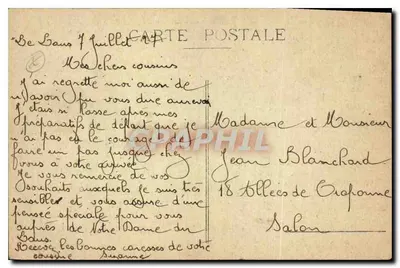 Le Laus 7 Juillet 27
CARTE POSTALE
Mes chers cousins
J'ai regretté moi aussi de
n'avoir pu vous dire aurevoir
J'étais si lasse après mes
préparatifs de départ que je
n'ai pas eu le courage de
faire un pas jusque chez
vous à votre arrivée
Je vous remercie de vos
souhaits auxquels je suis très
sensible et vous assure d'une
pensée spéciale pour vous
auprès de Notre Dame du
Laus.
Recevez les bonnes caresses de votre
cousine Suzanne
Madame et Monsieur
Jean Blanchard
18 Allées de Craponne
Salon
DELCAMPHIL